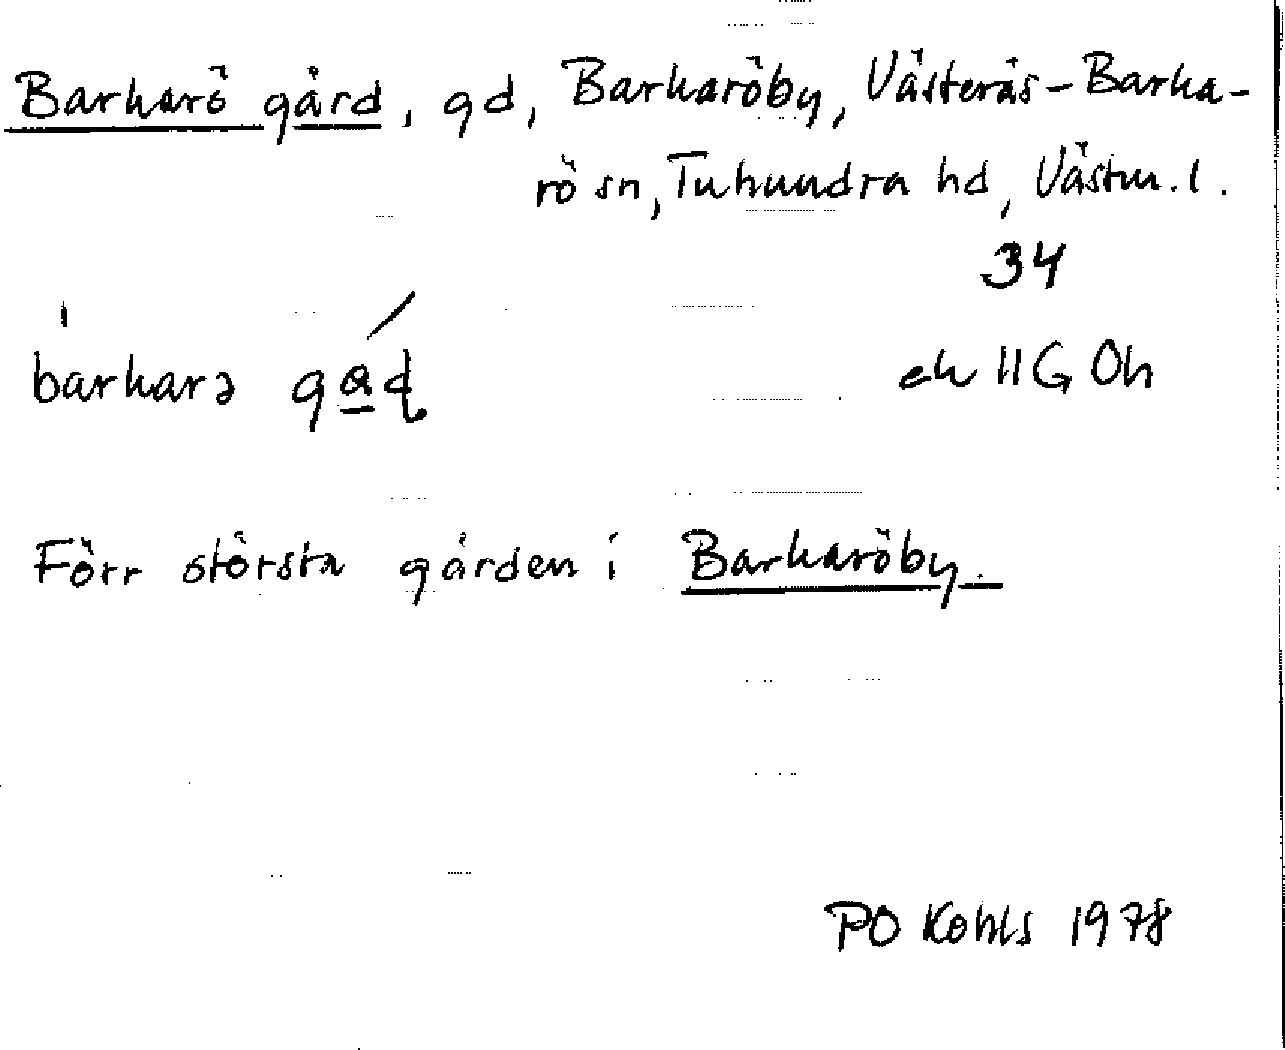 Barkarö gård, gd, Barkaröby, Västerås-Barka-
rö sn, Tuhundra hd, Västm. l.
34
barkarə ga̲ɖ
ek 11G 0h
Förr största gården i Barkaröby.
PO Kohls 1978